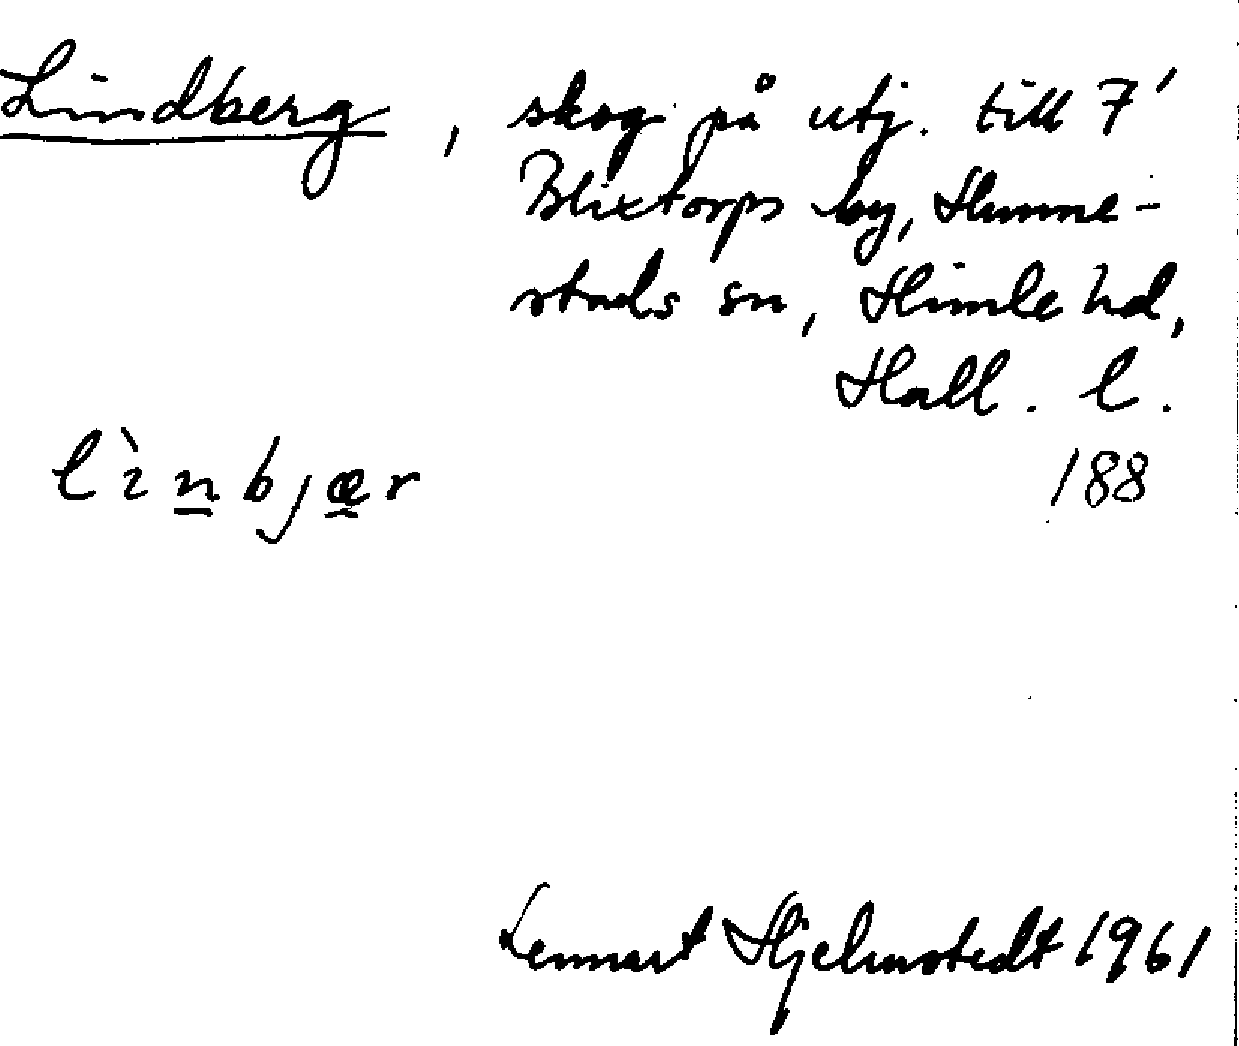 Lindberg, skog på utj. till 7'
Blixtorps by, Hunne-
stads sn, Himle hd,
Hall. l.
lìnbjær 188
Lennart Hjelmstedt 1961